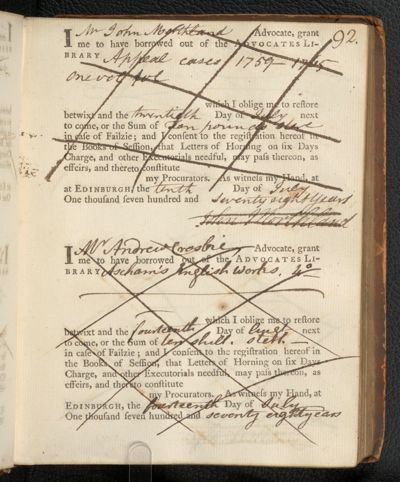 92.
I Mr John Morthland Advocate, grant
me to have borrowed out of the ADVOCATES LI-
BRARY Appeal cases 1759-1765
one vol fol
which I oblige me to restore
betwixt and the twentieth Day of July next
to come, or the Sum of Ten pounds
in case of Failzie; and I consent to the registration hereof in
the Books of Session, that Letters of Horning on six Days
Charge, and other Executorials needful, may pass thereon, as
effeirs, and thereto constitute
my Procurators. As witness my Hand, at
at EDINBURGH, the tenth Day of July
One thousand seven hundred and seventy eight years
John Morthland
I Mr Andrew Crosbie Advocate, grant
me to have borrowed out of the ADVOCATES LI-
BRARY Ascham's English Works, 4o
which I oblige me to restore
betwixt and the fourteenth Day of Augt. next
to come, or the Sum of ten shill. sterl.
in case of Failzie; and I consent to the registration hereof in
the Books of Session, that Letters of Horning on six Days
Charge, and other Executorials needful, may pass thereon, as
effeirs, and thereto constitute
my Procurators. As witness my Hand, at
EDINBURGH, the fourteenth Day of July
One thousand seven hundred and seventy eight years